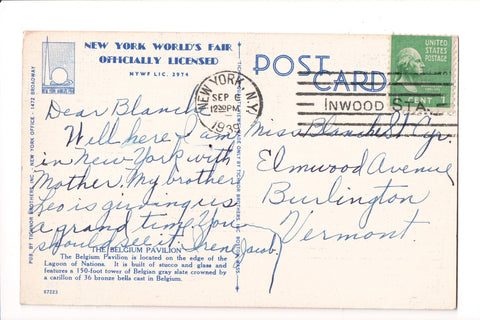 NEW YORK WORLD'S FAIR
OFFICIALLY LICENSED
NYWF LIC. 2974
POST
CARD
UNITED
STATES
POSTAGE
CENT
NEW YORK, N.Y.
SEP 6
12 30 PM
1939
INWOOD STA.
Dear Blanch
Well here I am
in New York with
Mother. My brother
Leo is giving us
a grand time. You
should see it. Irene Jacob.
Miss Blanche St. Cyr.
Elmwood Avenue
Burlington
Vermont.
THE BELGIUM PAVILION
The Belgium Pavilion is located on the edge of the
Lagoon of Nations. It is built of stucco and glass and
features a 150-foot tower of Belgian gray slate crowned by
a carillon of 36 bronze bells cast in Belgium.
67223
PUB. BY TICHNOR BROTHERS, INC. NEW YORK OFFICE - 1472 BROADWAY